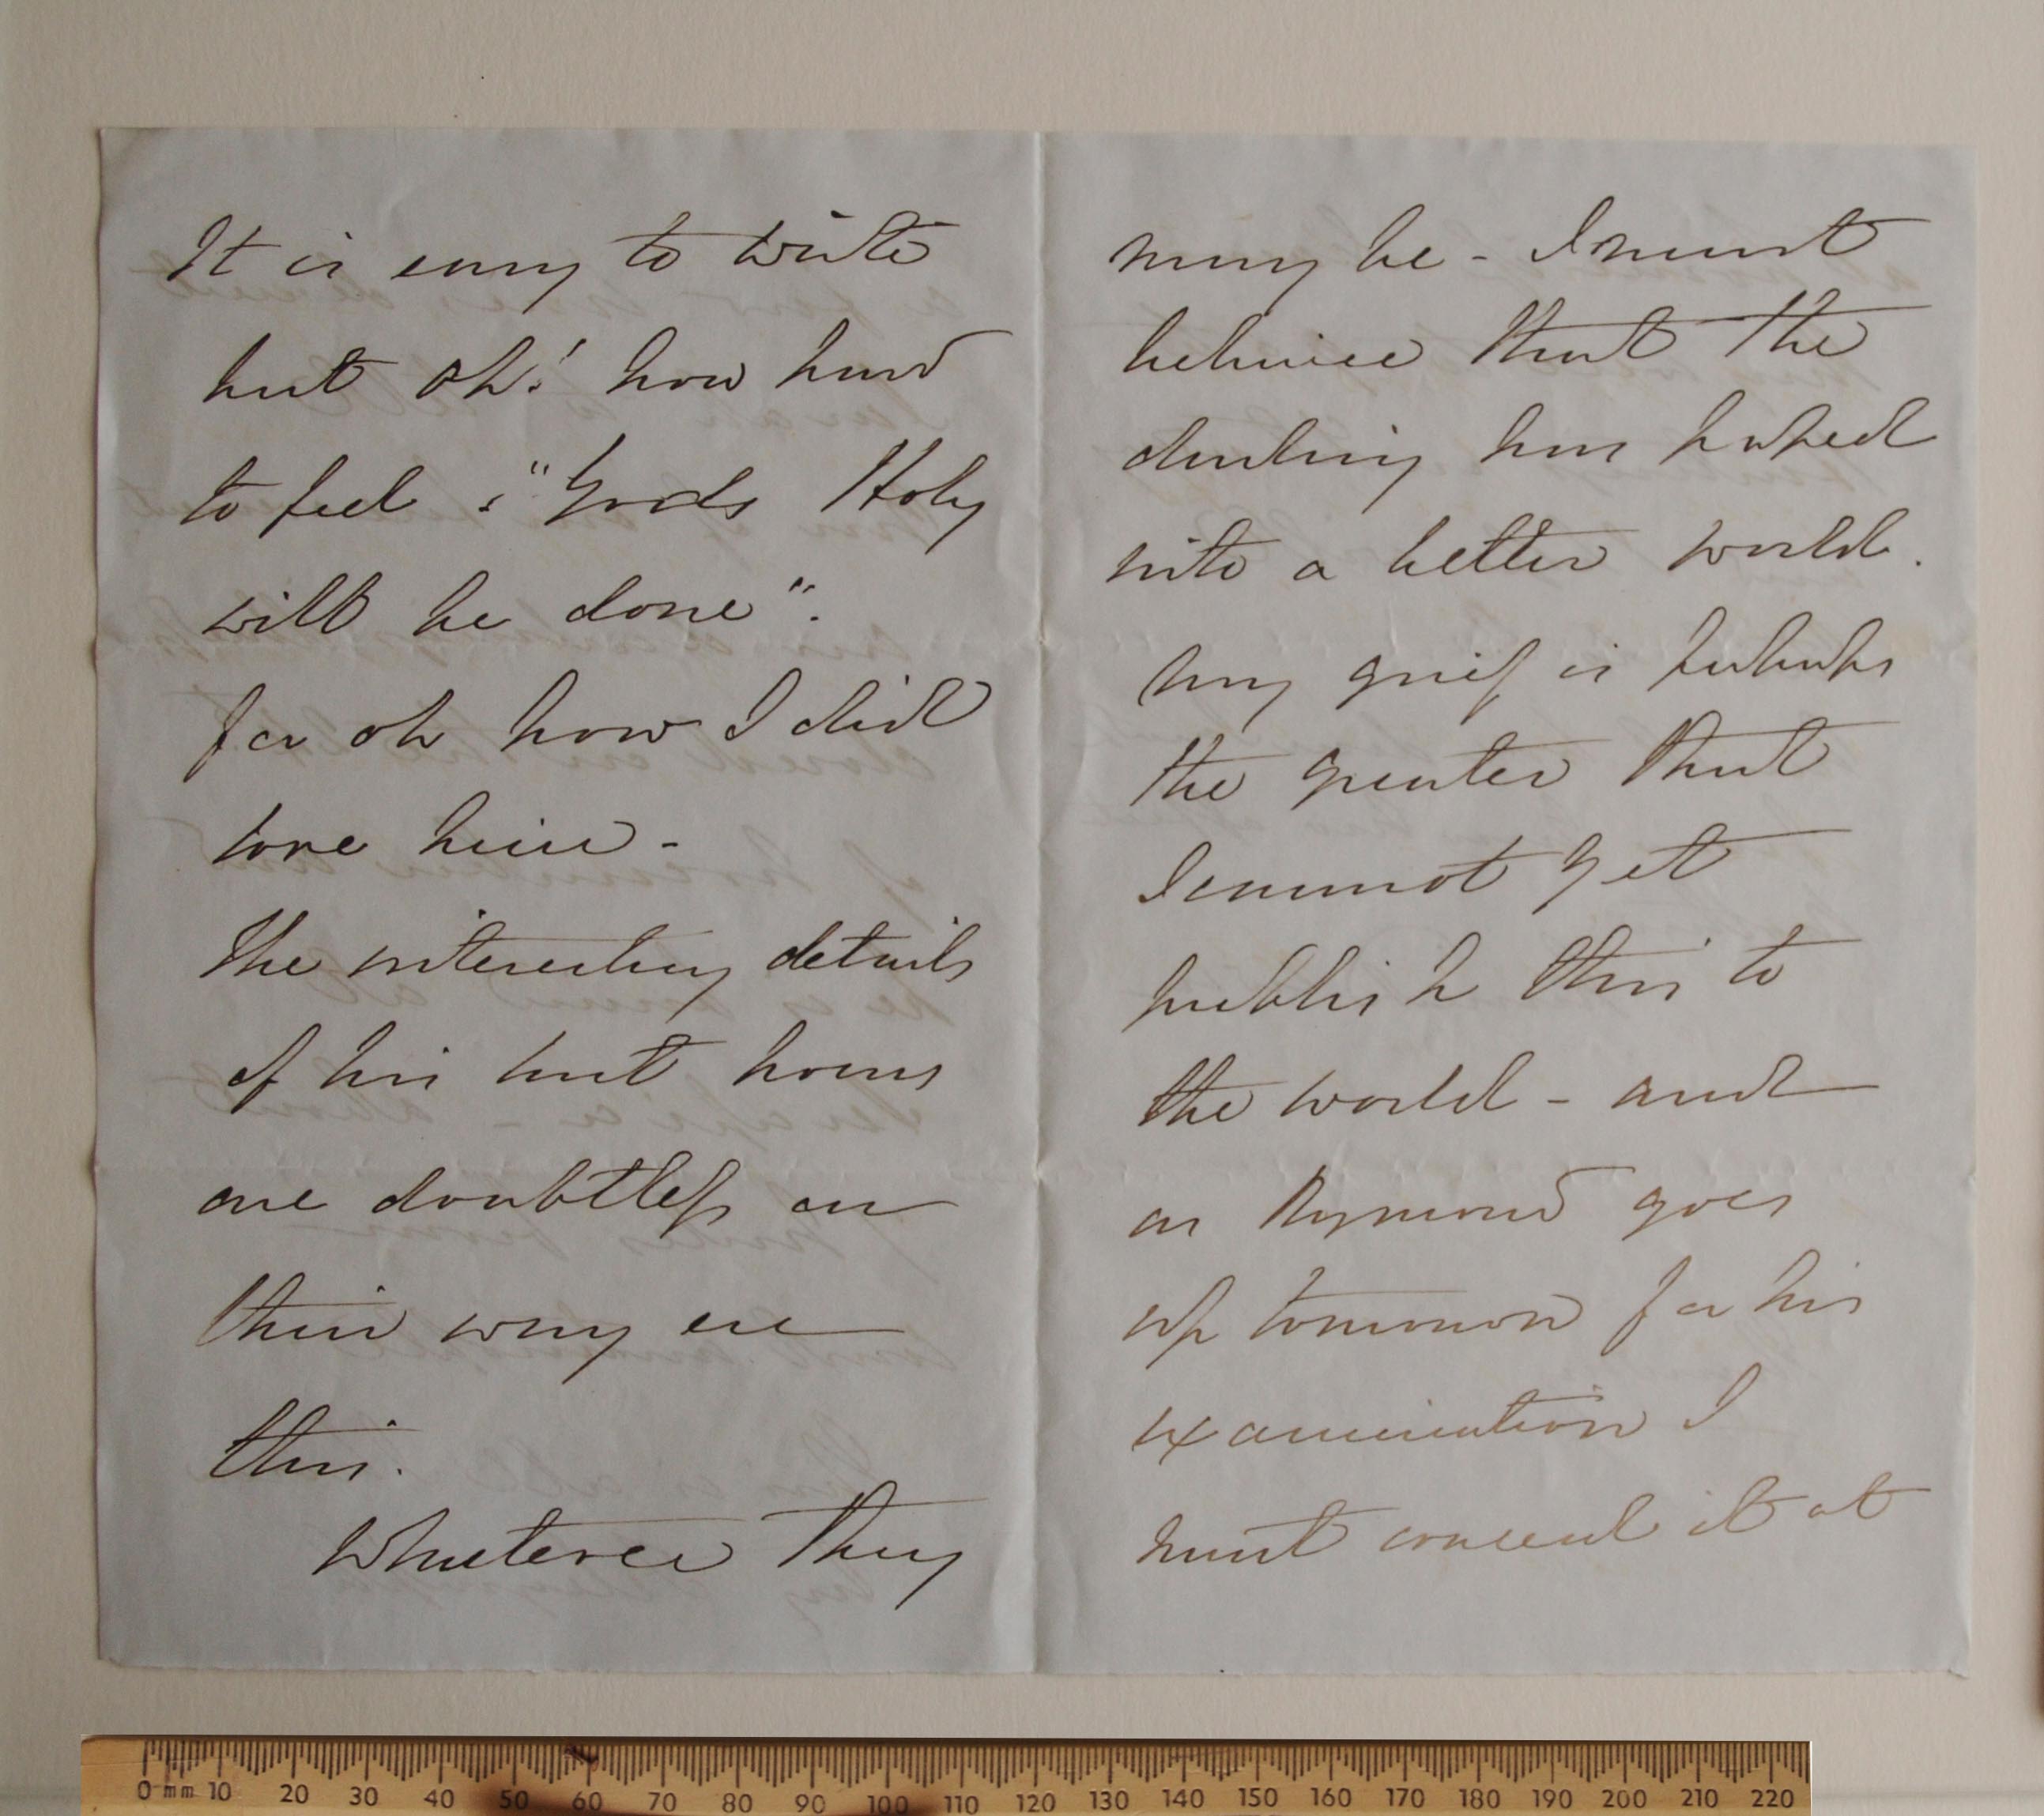 It is easy to write
but oh! how hard
to feel : "Gods Holy
will be done".
for oh how I did
love him -
The interesting details
of his last hours
are doubtless on
their way ere
this.
Whatever they
may be - I must
believe that the
darling has passed
into a better world.
My grief is perhaps
the greater that
I cannot yet
publish this to
the world - and
as Raymond goes
up tomorrow for his
examination I
must conceal it at
0 mm 10 20 30 40 50 60 70 80 90 100 110 120 130 140 150 160 170 180 190 200 210 220